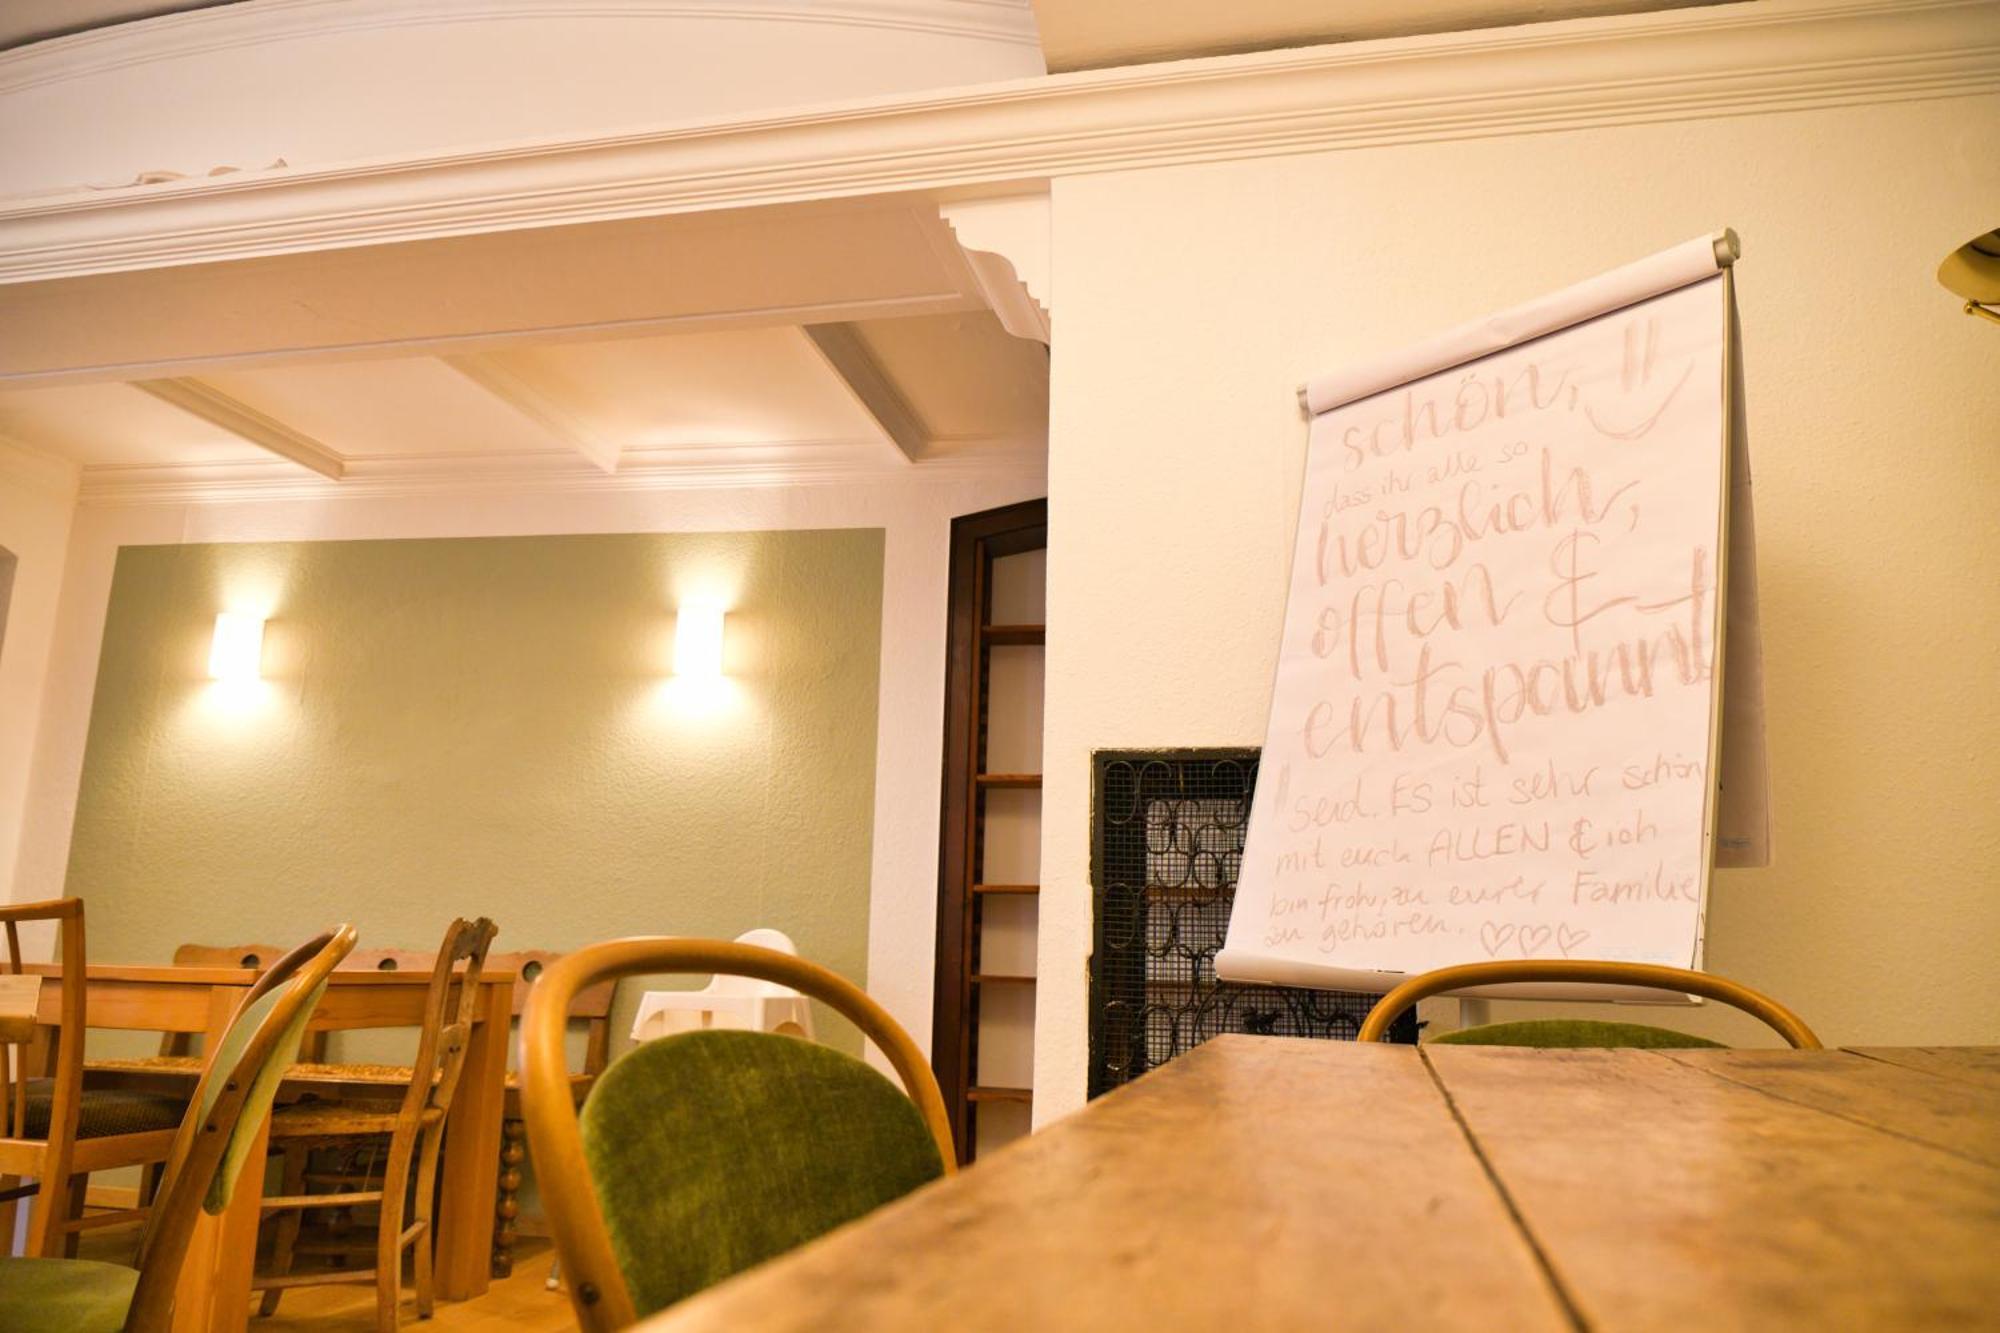 schön,
dass ihr alle so
herzlich,
offen &
entspannt
seid. Es ist sehr schön
mit euch ALLEN & ich
bin froh, zu eurer Familie
zu gehören. ♡♡♡